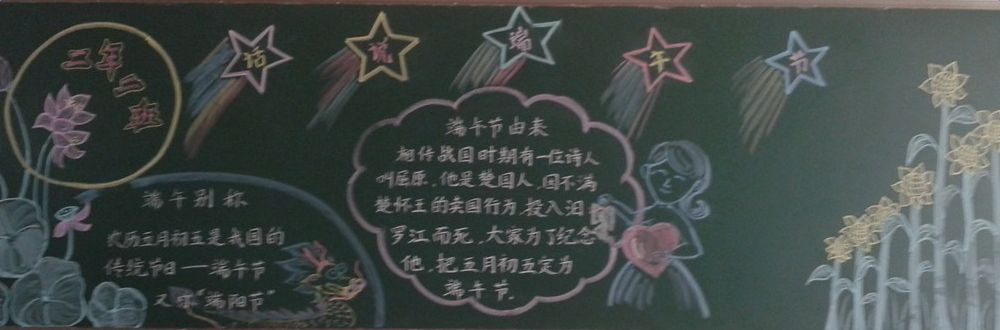 二年二班
话说端午节
端午别称
农历五月初五是我国的
传统节日——端午节
又称“端阳节”
端午节由来
相传战国时期有一位诗人
叫屈原,他是楚国人,因不满
楚怀王的卖国行为,投入汨
罗江而死,大家为了纪念
他,把五月初五定为
端午节.